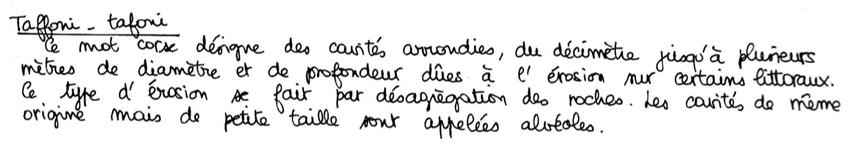 Taffoni - tafoni
Ce mot corse désigne des cavités arrondies, du décimètre jusqu'à plusieurs
mètres de diamètre et de profondeur dûes à l'érosion sur certains littoraux.
Ce type d'érosion se fait par désagrègation des roches. Les cavités de même
origine mais de petite taille sont appelées alvéoles.